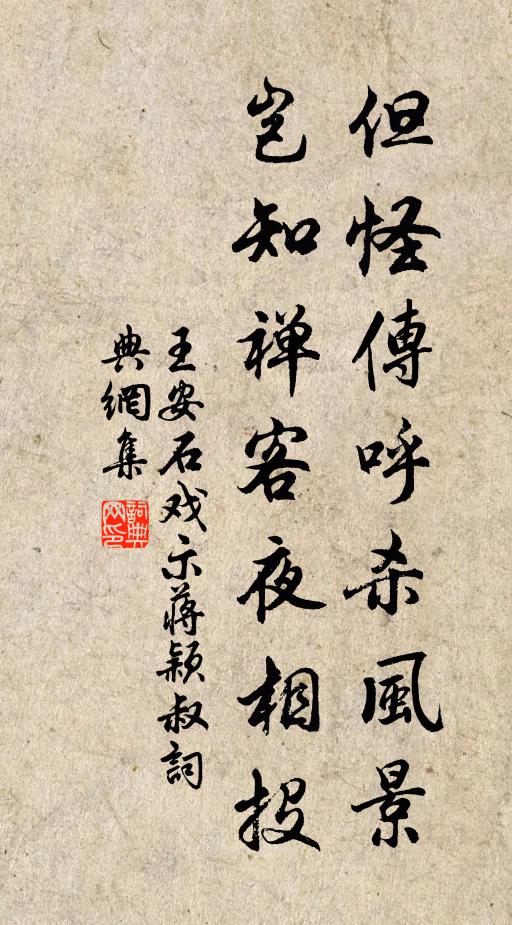 但怪傳呼杀風景
岂知禅客夜相投
王安石戏示蒋颖叔詞
典網集
詞典
网印